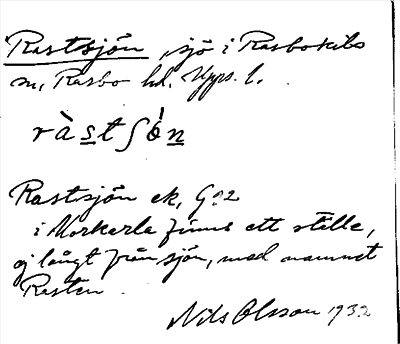 Rastsjön, sjö i Rasbokils
sn, Rasbo hd. Upps. l.
ràstʃön
Rastsjön ek, G:2
i Morkerla finns ett ställe,
ej långt från sjön, med namnet
Rasten.
Nils Olsson 1932